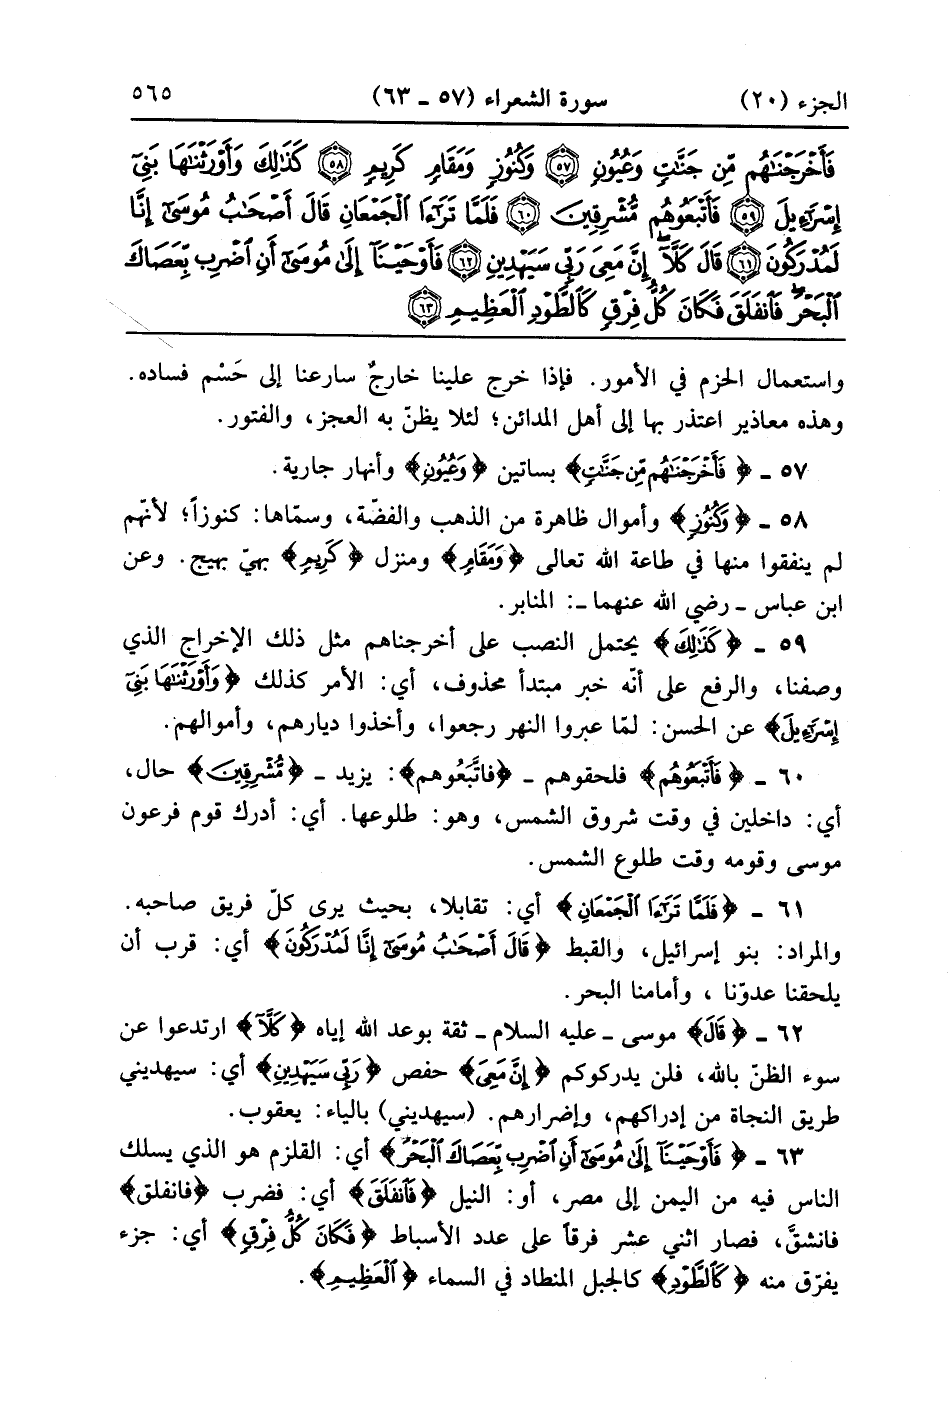 الجزء (٢٠) سورة الشعراء (٥٧ ـ ٦٣) ٥٦٥
فَأَخْرَجْنَٰهُم مِّن جَنَّٰتٍ وَعُيُونٍ ٥٧ وَكُنُوزٍ وَمَقَامٍ كَرِيمٍ ٥٨ كَذَٰلِكَ وَأَوْرَثْنَٰهَا بَنِىٓ
إِسْرَٰٓءِيلَ ٥٩ فَأَتْبَعُوهُم مُّشْرِقِينَ ٦٠ فَلَمَّا تَرَٰٓءَا ٱلْجَمْعَانِ قَالَ أَصْحَٰبُ مُوسَىٰٓ إِنَّا
لَمُدْرَكُونَ ٦١ قَالَ كَلَّآ ۖ إِنَّ مَعِىَ رَبِّى سَيَهْدِينِ ٦٢ فَأَوْحَيْنَآ إِلَىٰ مُوسَىٰٓ أَنِ ٱضْرِب بِّعَصَاكَ
ٱلْبَحْرَ ۖ فَٱنفَلَقَ فَكَانَ كُلُّ فِرْقٍ كَٱلطَّوْدِ ٱلْعَظِيمِ ٦٣
واستعمال الحزم في الأمور. فإذا خرج علينا خارجٌ سارعنا إلى حَسْم فساده.
وهذه معاذير اعتذر بها إلى أهل المدائن؛ لئلا يظنّ به العجز، والفتور.
٥٧ ـ ﴿فَأَخْرَجْنَٰهُم مِّن جَنَّٰتٍ﴾ بساتين ﴿وَعُيُونٍ﴾ وأنهار جارية.
٥٨ ـ ﴿وَكُنُوزٍ﴾ وأموال ظاهرة من الذهب والفضّة، وسمّاها: كنوزاً؛ لأنهم
لم ينفقوا منها في طاعة الله تعالى ﴿وَمَقَامٍ﴾ ومنزل ﴿كَرِيمٍ﴾ بهيّ بهيج. وعن
ابن عباس ـ رضي الله عنهما ـ: المنابر.
٥٩ ـ ﴿كَذَٰلِكَ﴾ يحتمل النصب على أخرجناهم مثل ذلك الإخراج الذي
وصفنا، والرفع على أنّه خبر مبتدأ محذوف، أي: الأمر كذلك ﴿وَأَوْرَثْنَٰهَا بَنِىٓ
إِسْرَٰٓءِيلَ﴾ عن الحسن: لمّا عبروا النهر رجعوا، وأخذوا ديارهم، وأموالهم.
٦٠ ـ ﴿فَأَتْبَعُوهُم﴾ فلحقوهم ـ ﴿فاتَّبَعُوهم﴾: يزيد ـ ﴿مُّشْرِقِينَ﴾ حال،
أي: داخلين في وقت شروق الشمس، وهو: طلوعها. أي: أدرك قوم فرعون
موسى وقومه وقت طلوع الشمس.
٦١ ـ ﴿فَلَمَّا تَرَٰٓءَا ٱلْجَمْعَانِ﴾ أي: تقابلا، بحيث يرى كلّ فريق صاحبه.
والمراد: بنو إسرائيل، والقبط ﴿قَالَ أَصْحَٰبُ مُوسَىٰٓ إِنَّا لَمُدْرَكُونَ﴾ أي: قرب أن
يلحقنا عدوّنا ، وأمامنا البحر.
٦٢ ـ ﴿قَالَ﴾ موسى ـ عليه السلام ـ ثقة بوعد الله إياه ﴿كَلَّآ﴾ ارتدعوا عن
سوء الظنّ بالله، فلن يدركوكم ﴿إِنَّ مَعِىَ﴾ حفص ﴿رَبِّى سَيَهْدِينِ﴾ أي: سيهديني
طريق النجاة من إدراكهم، وإضرارهم. (سيهديني) بالياء: يعقوب.
٦٣ ـ ﴿فَأَوْحَيْنَآ إِلَىٰ مُوسَىٰٓ أَنِ ٱضْرِب بِّعَصَاكَ ٱلْبَحْرَ﴾ أي: القلزم هو الذي يسلك
الناس فيه من اليمن إلى مصر، أو: النيل ﴿فَٱنفَلَقَ﴾ أي: فضرب ﴿فانفلق﴾
فانشقَّ، فصار اثني عشر فرقاً على عدد الأسباط ﴿فَكَانَ كُلُّ فِرْقٍ﴾ أي: جزء
يفرّق منه ﴿كَٱلطَّوْدِ﴾ كالجبل المنطاد في السماء ﴿ٱلْعَظِيمِ﴾.